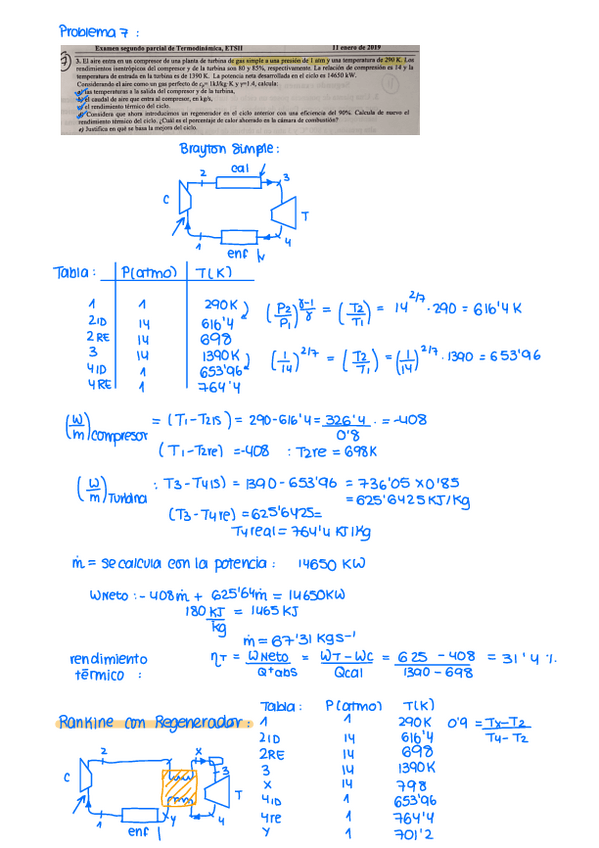 Problema 7 :
Examen segundo parcial de Termodinámica, ETSII 11 enero de 2019
3. El aire entra en un compresor de una planta de turbina de gas simple a una presión de 1 atm y una temperatura de 290 K. Los
rendimientos isentrópicos del compresor y de la turbina son 80 y 85%, respectivamente. La relación de compresión es 14 y la
temperatura de entrada en la turbina es de 1390 K. La potencia neta desarrollada en el ciclo es 14650 kW.
Considerando el aire como un gas perfecto de cp= 1kJ/kg·K y γ=1.4, calcula:
a) las temperaturas a la salida del compresor y de la turbina,
b) el caudal de aire que entra al compresor, en kg/s,
c) el rendimiento térmico del ciclo.
d) Considera que ahora introducimos un regenerador en el ciclo anterior con una eficiencia del 90%. Calcula de nuevo el
rendimiento térmico del ciclo. ¿Cuál es el porcentaje de calor ahorrado en la cámara de combustión?
e) Justifica en qué se basa la mejora del ciclo.
Brayton Simple :
2 cal 3
C T
1 enf 4
Tabla : P(atmo) T(K)
1 1 290K
2ID 14 616'4
2RE 14 698
3 14 1390K
4ID 1 653'96
4RE 1 764'4
(P2/P1)^γ-1/γ = (T2/T1) = 14^2/7 · 290 = 616'4 K
(1/14)^2/7 = (T2/T1) = (1/14)^2/7 · 1390 = 653'96
(W/m)compresor = (T1-T2IS) = 290-616'4 = 326'4/0'8 . = -408
(T1-T2re) =-408 : T2re = 698K
(W/m)Turbina : T3-T4IS) = 1390-653'96 = 736'05 x0'85
= 625'6425 KJ/Kg
(T3-T4re) = 625'6425=
T4real = 764'4 KJ/Kg
ṁ = se calcula con la potencia : 14650 KW
WNeto : - 408ṁ + 625'64ṁ = 14650KW
180 KJ/kg = 1465 KJ
ṁ = 67'31 Kgs⁻¹
rendimiento térmico : ηT = WNeto/Q⁺abs = WT-WC/Qcal = 625 - 408/1390 - 698 = 31'4 %
Rankine con Regenerador :
Tabla : P(atmo) T(K)
1 1 290K
2ID 14 616'4
2RE 14 698
3 14 1390K
x 14 798
4ID 1 653'96
4re 1 764'4
Y 1 701'2
0'9 = Tx-T2/T4-T2
2 x 3
C T
1 enf y 4